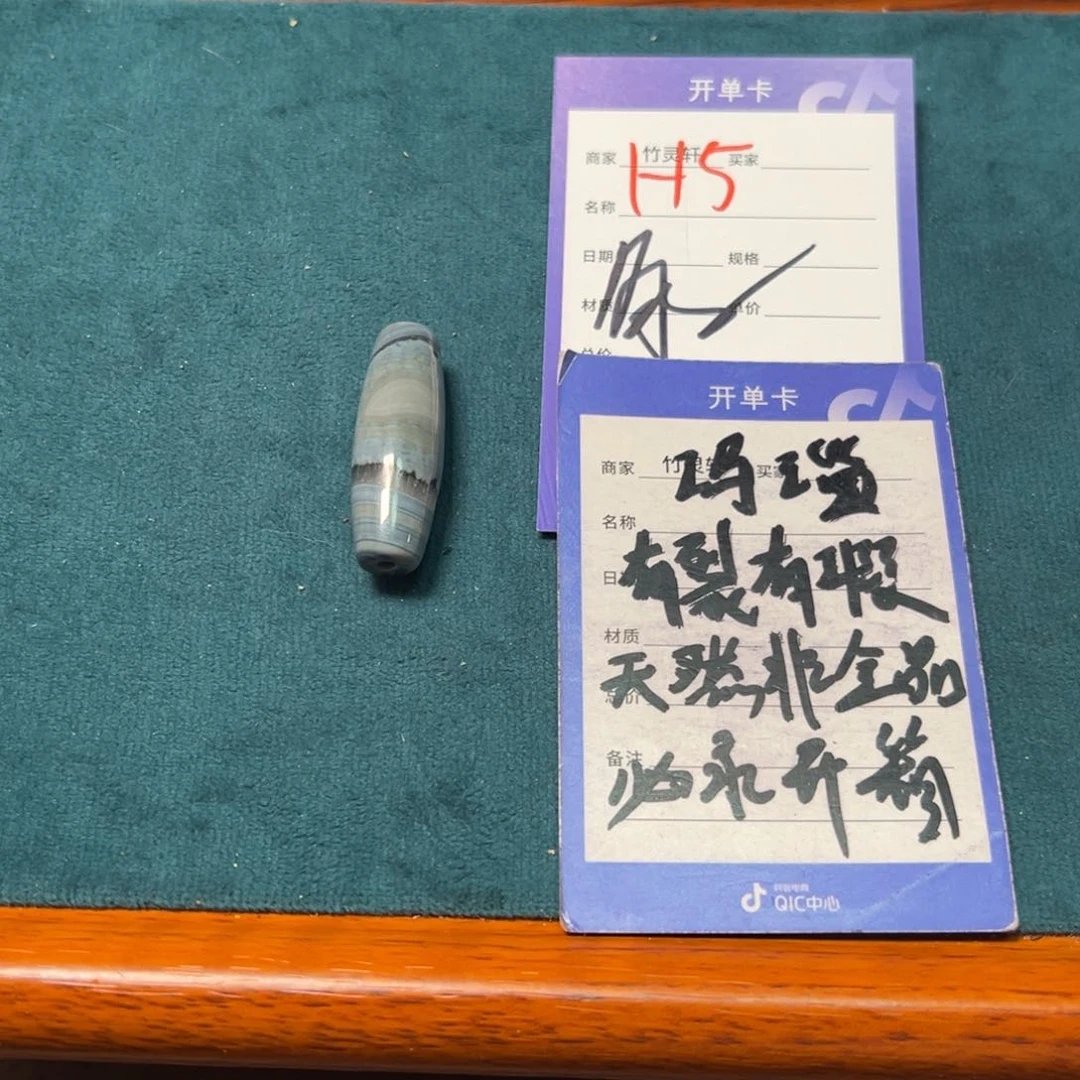 开单卡
商家 竹灵轩 买家
H5
名称
日期 规格
材质 单价
总价
开单卡
商家 竹灵轩 买家
玛瑙
名称
有裂有瑕
材质
天然非全品
备注
抖音电商
QIC中心